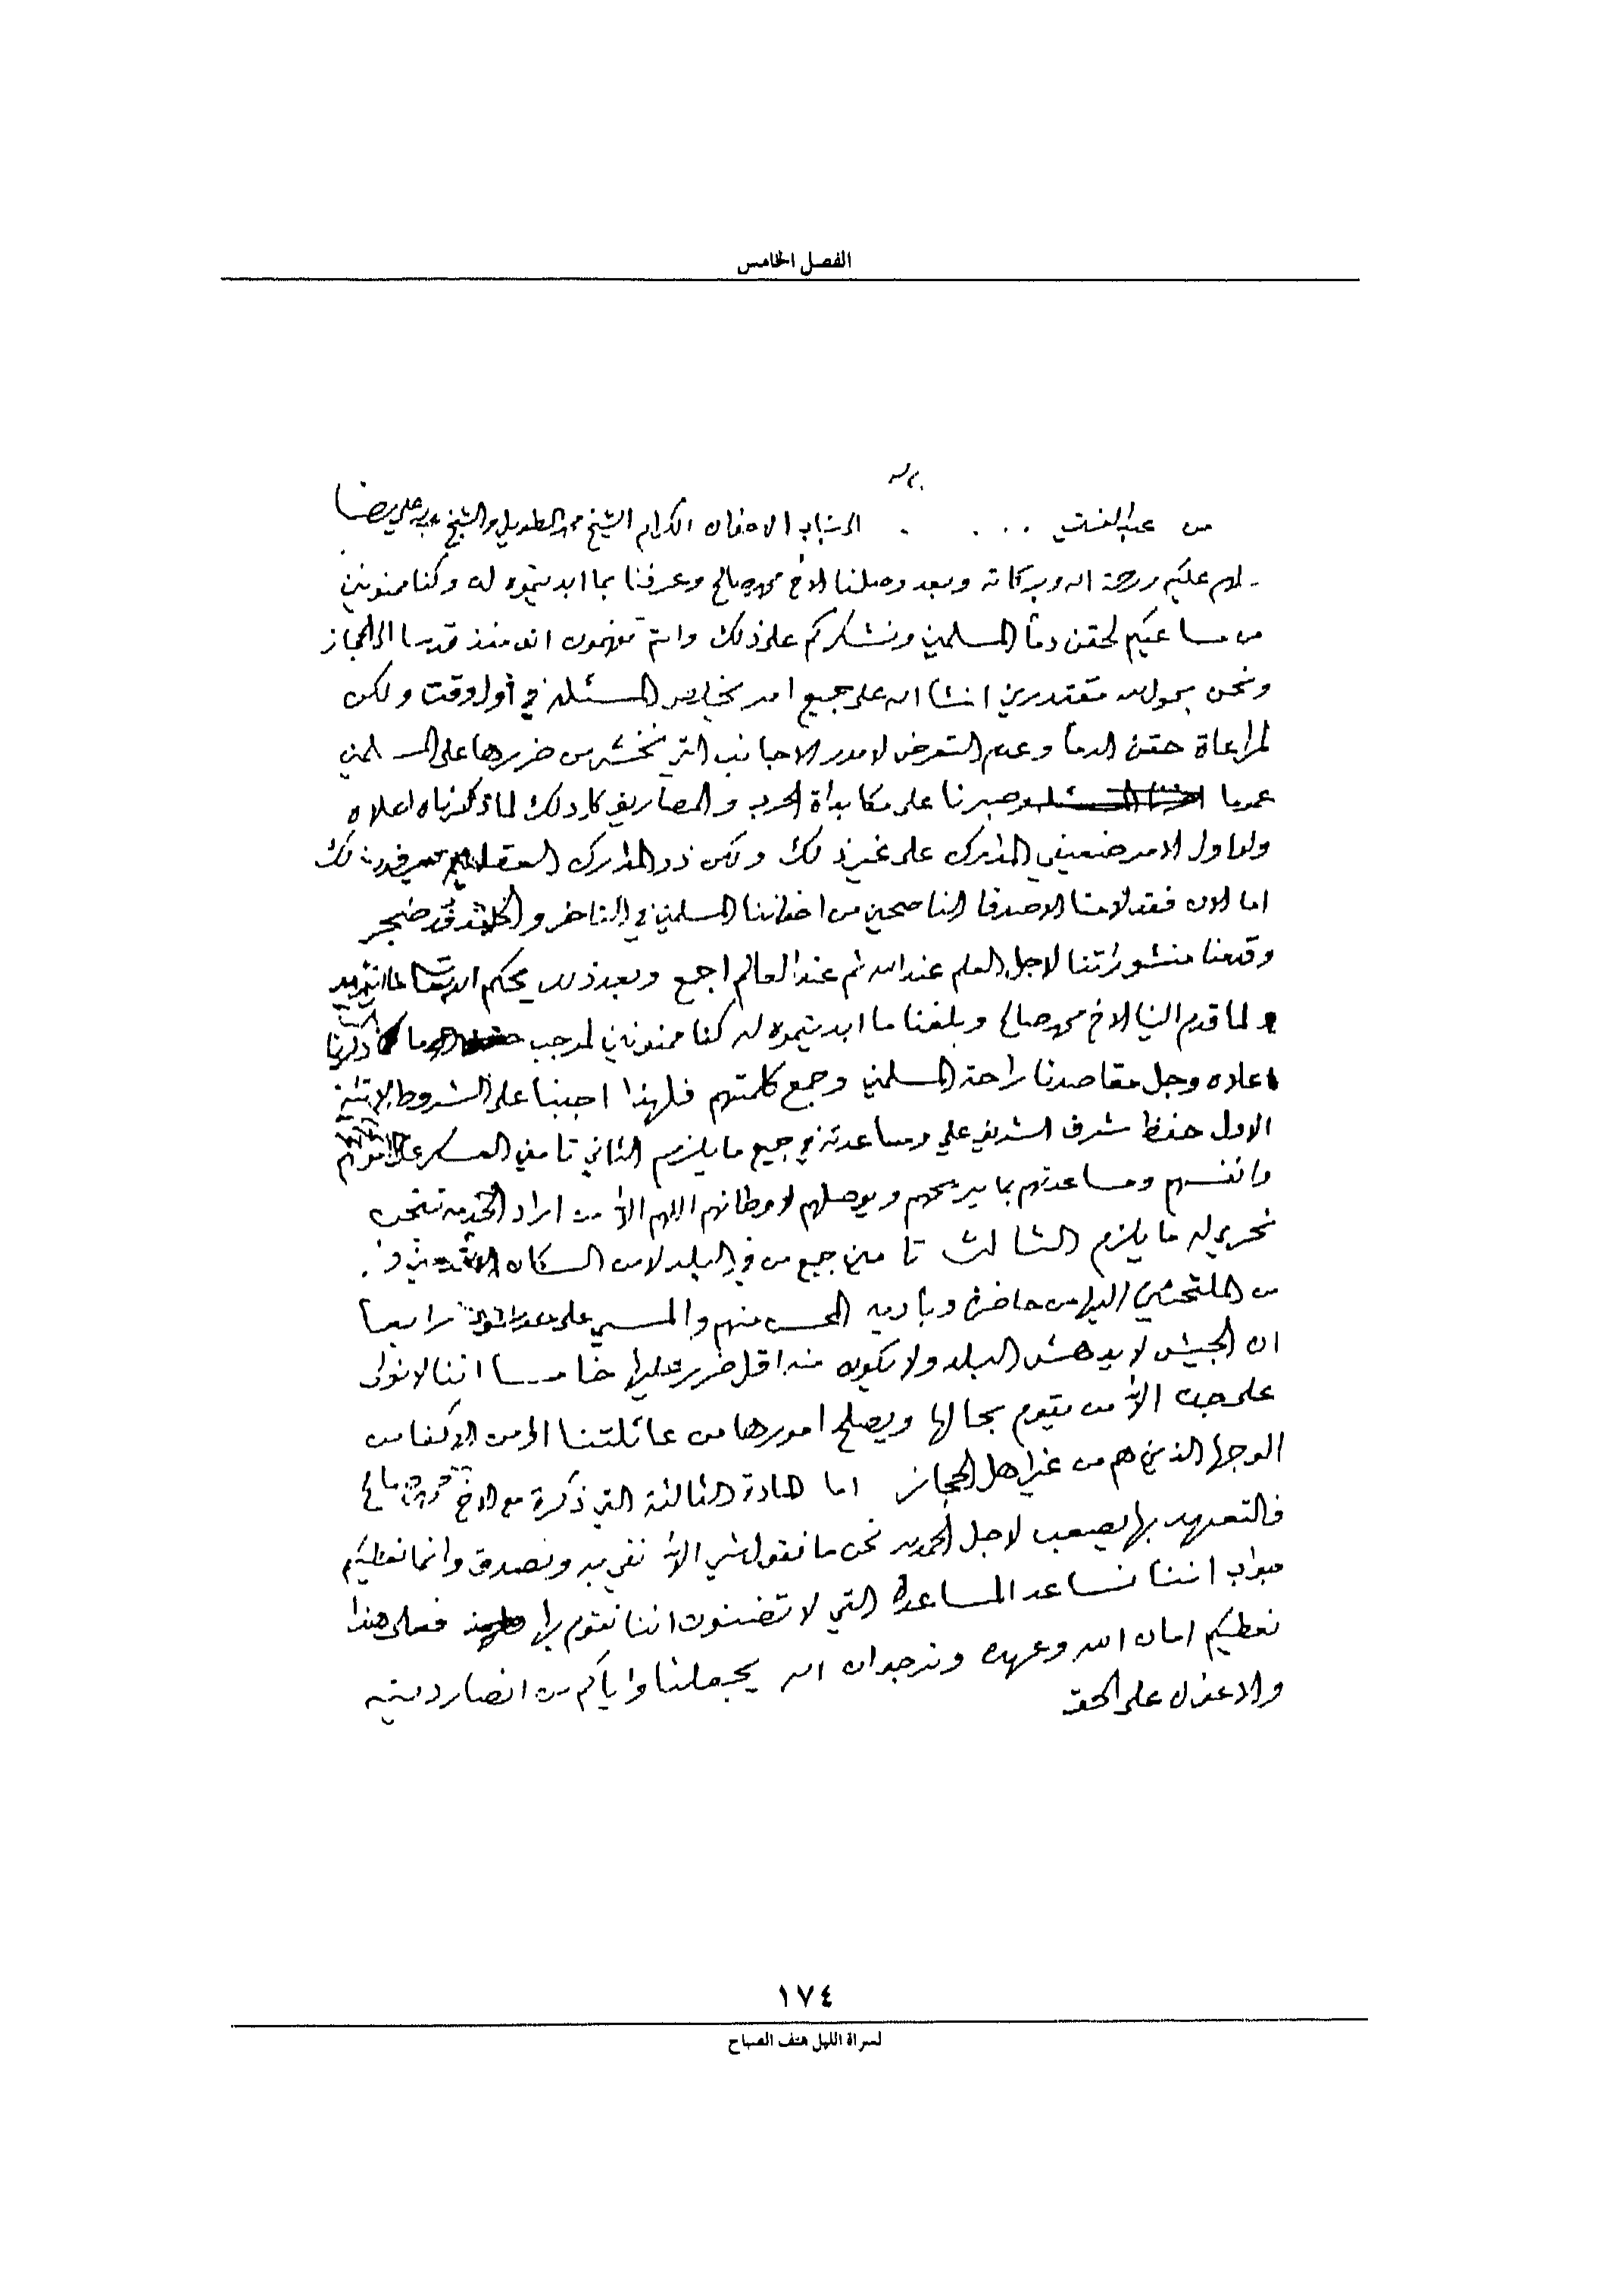 الفصل الخامس
من عبد العزيز الى جناب الاخوان الكرام الشيخ محمد الطويل والشيخ محمد علي رضا
سلام عليكم ورحمة الله وبركاته وبعد وصلنا الاخ محمد صالح وعرفنا بما ابديتموه له وكنا ممنونين
من مساعيكم لحقن دماً المسلمين ونشكركم على ذلك وانتم تفهمون انه منذ قدمنا الى الحجاز
ونحن بحول الله مقتدرين انشا الله على جميع امر يخلص المسئله في أول وقت ولكن
لمراعاة حقن الدماً وعدم التعرض لامور الاجانب التي نخشى من ضررها على المسلمين
عموما وصبرنا على مكابداة الحرب والمصاريف كل ذلك لما ذكرناه اعلاه
ولعا ول الامر ضعيفي المدارك على غير ذلك ولكن ذو المدارك العقليه ذلك
اما الان فقد لامنا الاصدقا الناصحين من اخواننا المسلمين في التاخر والكل قد ضجر
وقدمنا منشوراتنا لاجل العلم عند الله ثم عند العالم اجمع وبعد ذلك يحكم الله بما يريد
ولما قدم الينا الاخ محمد صالح وبلغنا ما ابديتموه له كنا ممنونين لموجب ما ذكرنا
اعلاه وجل مقاصدنا راحة المسلمين وجمع كلمتهم فلهذا اجبنا على الشروط الاتية
الاول حفظ شرف الشريف علي ومساعدته في جميع ما يلزم الثاني تامين العسكر على اموالهم
وانفسهم ومساعدتهم بما يريحهم ويوصلهم لاوطانهم اللهم الاّ من اراد الخدمه
نجري له ما يلزم الثالث تامين جميع من في البلد لامن السكان
من الملتجئين اليها من حاضرة وباديه المحسن منهم والمسيء على رابعاً
ان الجيش لا يدهش البلد ولا يكون منه اقل ضرر عليها خامساً اننا لا نولى
على جده الاّ من يقوم بحالها ويصلح امورها من عائلتنا او من الاكفا من
الوجها الذين هم من غير اهل الحجاز اما المادة الثالثة التي ذكرة مع الاخ محمد صالح
فالتعهد بها يصعب لاجل نحن ما نقول شي الاّ نفي به ونصدق وانما نعطيكم
جواب اننا نساعد المساعدة التي لا تضنون اننا نقوم بها فعلى هذا
نعطيكم امان الله وعهده ونرجو ان الله يجعلنا واياكم من انصار دينه
والاعوان على الحق
١٧٤
لسراة الليل هتف الصباح